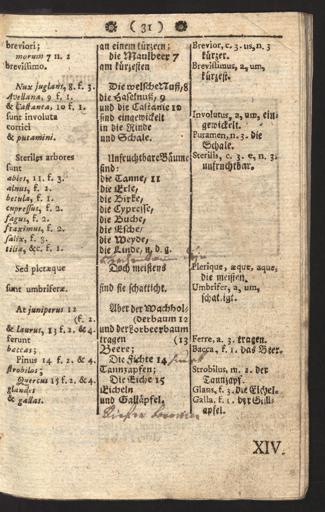 ( 31 )
breviori;
morum 7 n. 2
brevissimo.
Nux juglans, 8. f. 3.
Avellana, 9 f. 1.
& Castanea, 10 f. 1.
sunt involuta
cortici
& putamini.
Steriles arbores
sunt
abies, 11. f. 3.
alnus, f. 2.
betula, f. 1.
cupressus, f. 2.
fagus, f. 2.
fraxinus, f. 2.
salix, f. 3.
tilia, &c. f. 1.
Sed pleræque
sunt umbriferæ.
At juniperus 12
(f. 2.
& laurus, 13 f. 2. & 4.
ferunt
baccas;
Pinus 14 f. 2. & 4.
strobilos;
Quercus 15 f. 2. & 4.
glandes
& gallas.
an einem kürzern;
die Maulbeer 7
am kürzesten
Die welsche Nuß, 8
die Haselnuß, 9
und die Castanie 10
sind eingewickelt
in die Rinde
und Schale.
Unfruchtbare Bäume
sind:
die Tanne, 11
die Erle,
die Birke,
die Cypresse,
die Buche,
die Esche,
die Weyde,
die Linde, u. d. g.
Doch meistens
sind sie schatticht.
Aber der Wachhol-
(derbaum 12
und der Lorbeerbaum
tragen (13
Beere;
Die Fichte 14
Tannzapfen;
Die Eiche 15
Eicheln
und Galläpfel.
Brevior, c. 3. us, n. 3
kürzer.
Brevissimus, a, um,
kürzest.
Involutus, a, um, ein-
gewickelt.
Putamen, n. 3. die
Schale.
Sterilis, c. 3. e, n. 3.
unfruchtbar.
Plerique, æque, aque,
die meisten.
Umbrifer, a, um,
schattigt.
Ferre, a. 3. tragen.
Bacca, f. 1. das Beer.
Strobilus, m. 2. der
Tannzapf.
Glans, f. 3. die Eichel.
Galla, f. 1. der Gall-
apfel.
XIV.